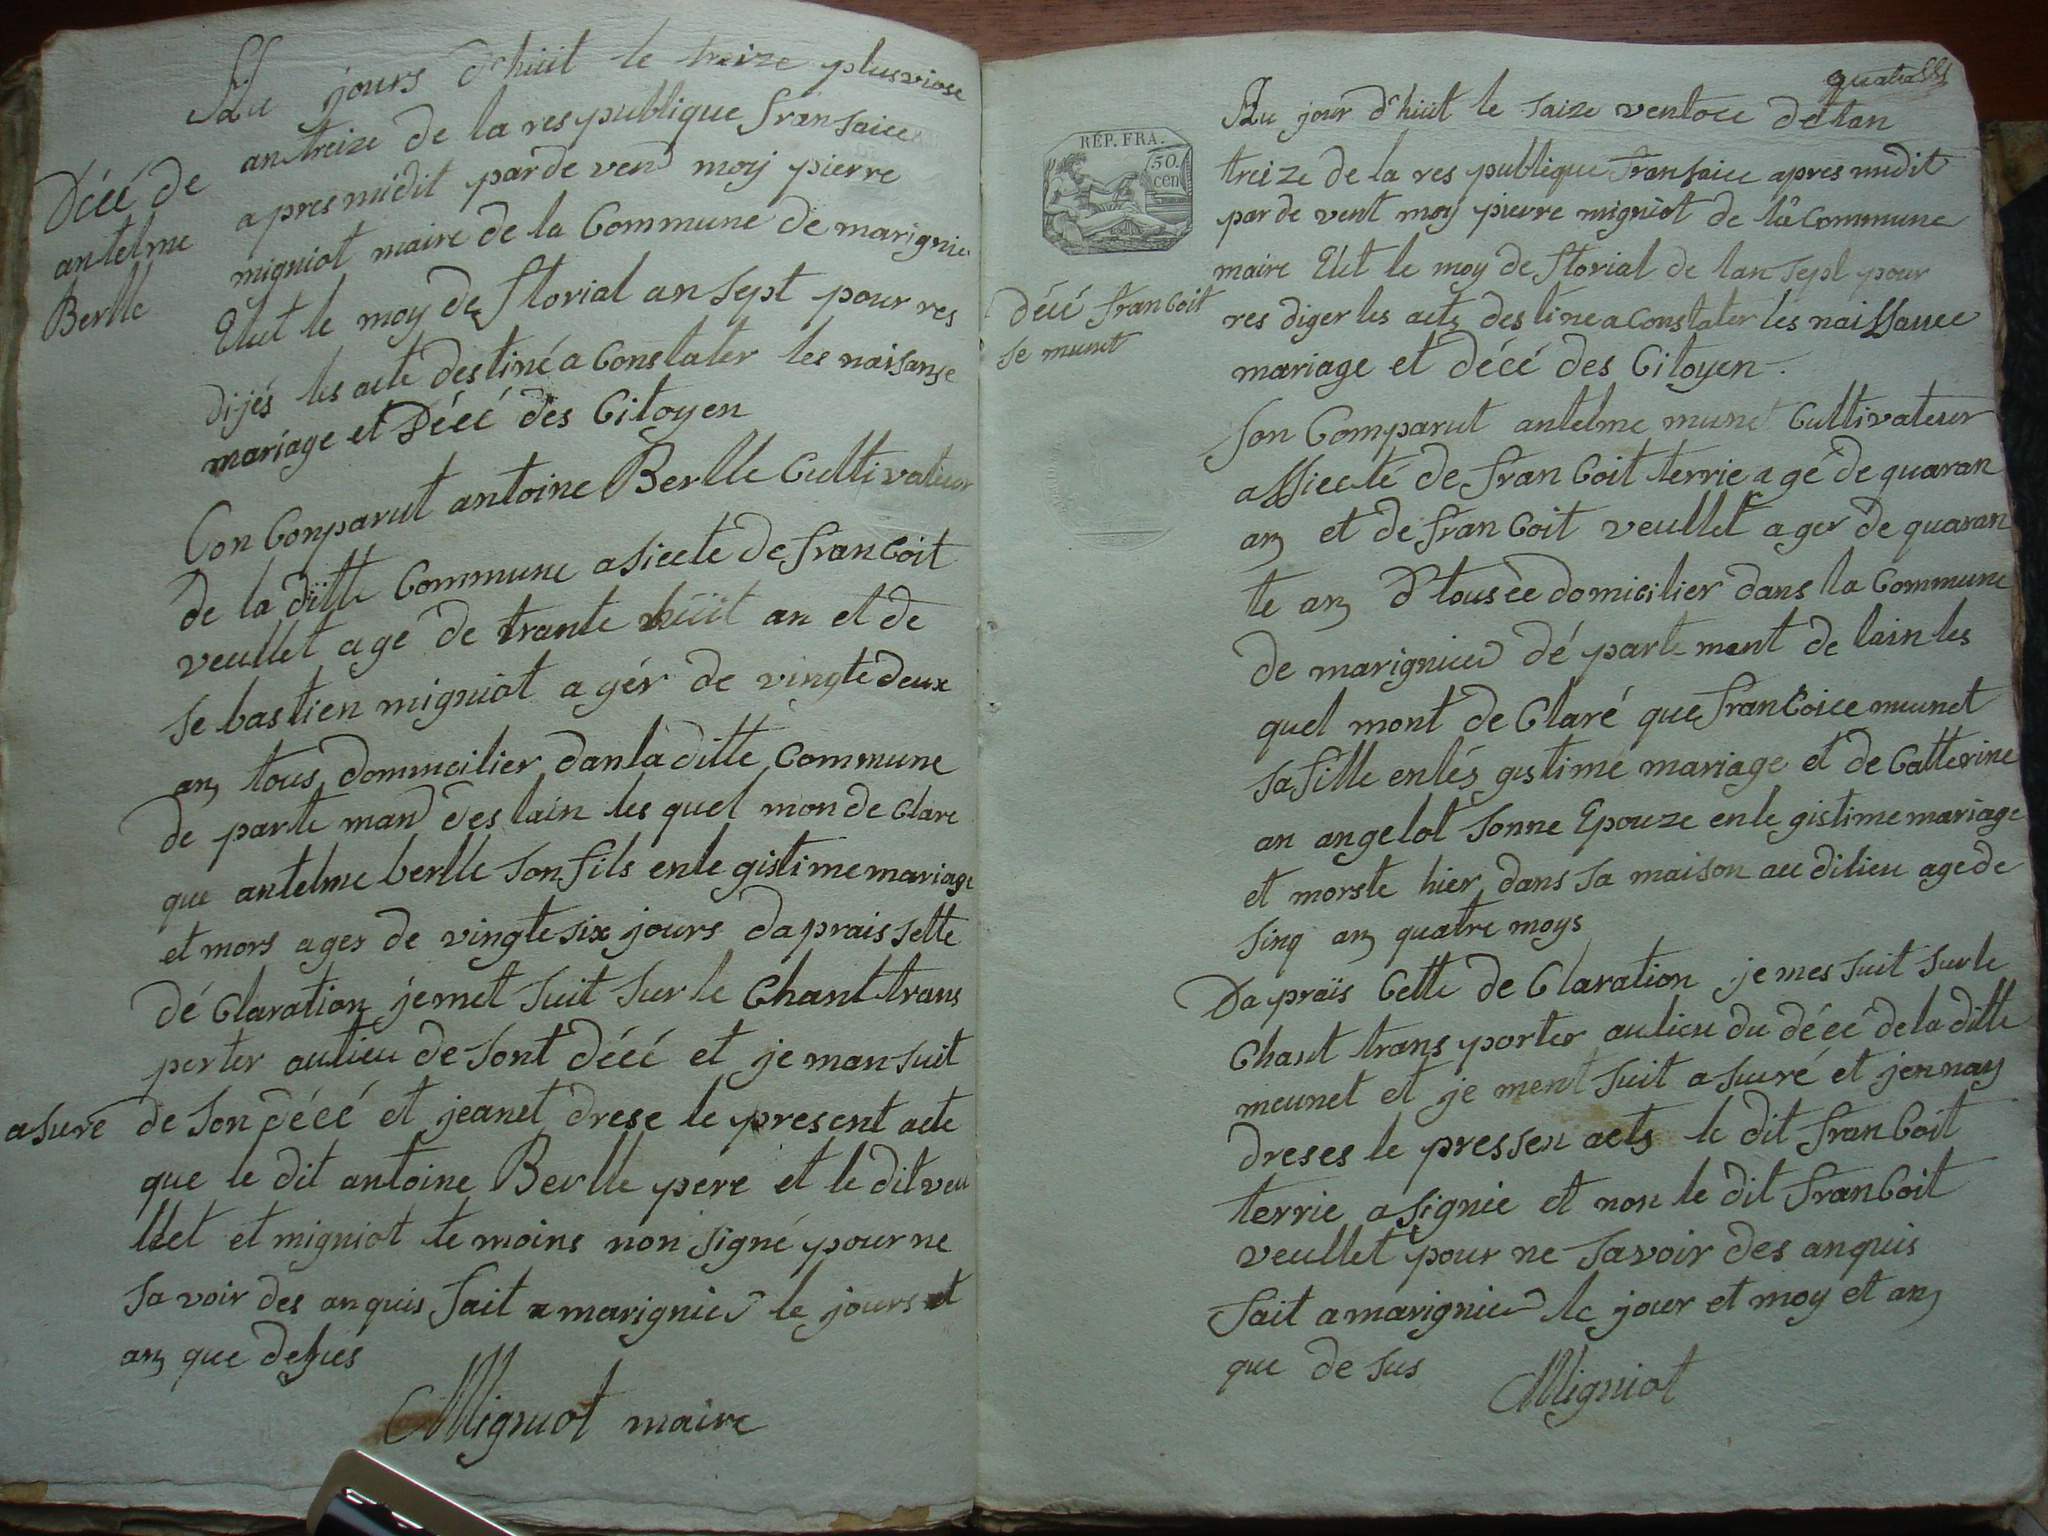 Au jours d'huit le treize plusviose
an treize de la res publique fransaice
apres midit par de ven moy pierre
migniot maire de la Commune de marignieu
Elut le moy de florial an sept pour res
dijés les acte destiné a Constater les naisanse
mariage et Décé des Citoyen
Décé de
antelme
Berlle
Con Conparut antoine Berlle Cultivateur
de la ditte Commune asiecte de francoit
veullet agé de trante huit an et de
sebastien migniot agér de vingte deux
an tous dommcilier dan la ditte Commune
de parte man des lain les quel mon de clare
que antelme berlle son fils en le gistime mariage
et mors ager de vingte six jours daprais sette
dé Claration je met suit sur le Chant trans
porter au lieu de sont décé et je man suit
asuré
de son décé et jeanet drese le present acte
que le dit antoine Berlle pere et le dit veu
llet et migniot te moins non signé pour ne
savoir des an quis fait a marignieu le jours et
an que desus
Migniot maire
quatre
Au jour d'huit le saize ventoce de lan
treize de la res publique fransaice apres midit
par de vent moy pierre migniot de la Commune
maire Elut le moy de florial de lan sept pour
res diger les acts destine a Constater les naissance
mariage et décé des Citoyen.
RÉP. FRA.
50.
cen
décé francoit
se munet
son Comparut antelme munet Cultivateur
assiecté de francoit terrie agé de quaran
an et de francoit veullet ager de quaran
te an d tousée domicilier dans la Commune
de marignieu dé parte ment de lain les
quel mont de Claré que francoice meunet
sa fille en lés gistime mariage et de Catterine
an angelot sonne Epouze en le gistime mariage
et morste hier dans sa maison au dilieu age de
sinq an quatre moys
Da praïs Cette de Claration je mes suit sur le
Chant trans porter au lieu du décé de la ditte
meunet et je ment suit asuré et jennay
dreses le pressen acts le dit francoit
terrie a signie et non le dit francoit
veullet pour ne savoir des an quis
fait a marignieu le jour et moy et an
que de sus
Migniot